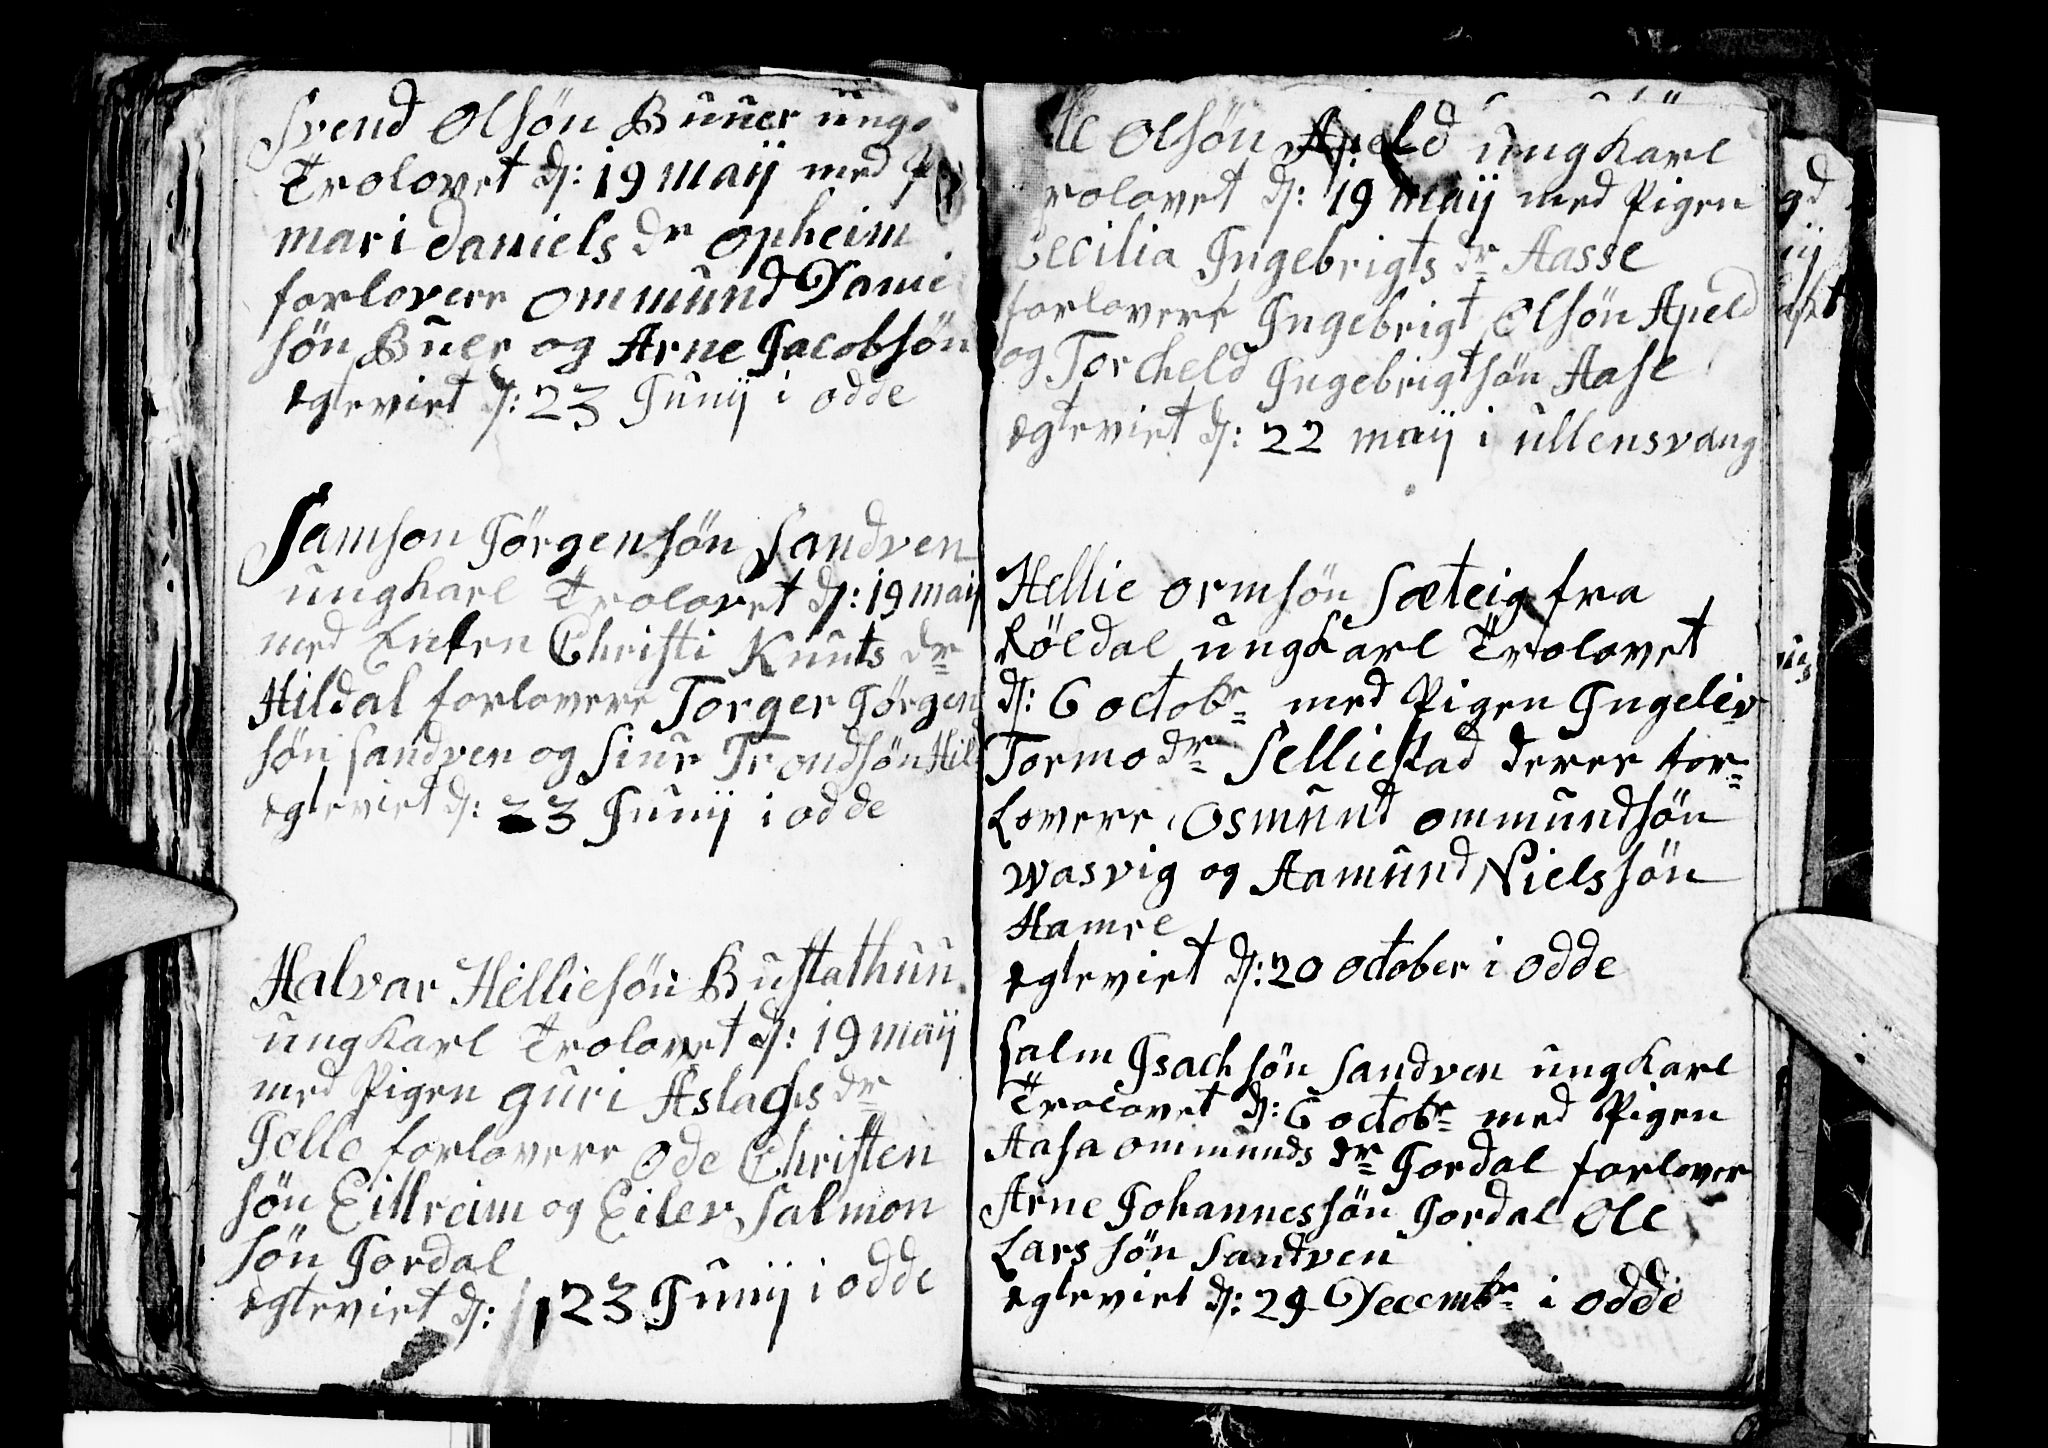 Svend Olsön Buuer ung
Trolovet d: 19 maij med
mari daniels dr opheim
forlovere ommund Danie
sön Buer og Arne Jacobsön
egteviet d: 23 Junij i odde
Samson Jörgensön Sandven
ungkarl Trolovet d: 19 maij
med Enken Christi Knuts dr
Hildal forlovere Torger Jörgen
sön sandven og Siur Trondsön Hild
egteviet d: 23 Junij i odde
Halvar Helliesön Bustathuun
ungkarl Trolovet d: 19 maij
med Pigen guri Aslachs dr
Jelle forlovere Ode Christen
sön Eitreim og Eilev Salmon
sön Jordal
egteviet d: 23 Junij i odde
le Olsön Apeld ungkarl
rolovet d: 19 maij med Pigen
Cecilia Ingebrigts dr Aasse
forlovere Ingebrigt Olsön Apeld
og Torcheld Ingebrigtsön Aase
egteviet d: 22 maij i ullensvang
Hellie ormsön Sæteig fra
Röldal ungkarl Trolovet
d: 6 octobr med Pigen Ingeliv
Tormo dr Selliestad derer for-
lovere Osmund ommundsön
wasvig og Aamund Nielssön
Hamre
egteviet d: 20 october i odde
Salm Isachsön Sandven ungkarl
Trolovet d: 6 octobr med Pigen
Aasa ommunds dr Jordal forlover
Arne Johannessön Jordal Ole
Lars sön Sandven
egteviet d: 29 Decembr i odde